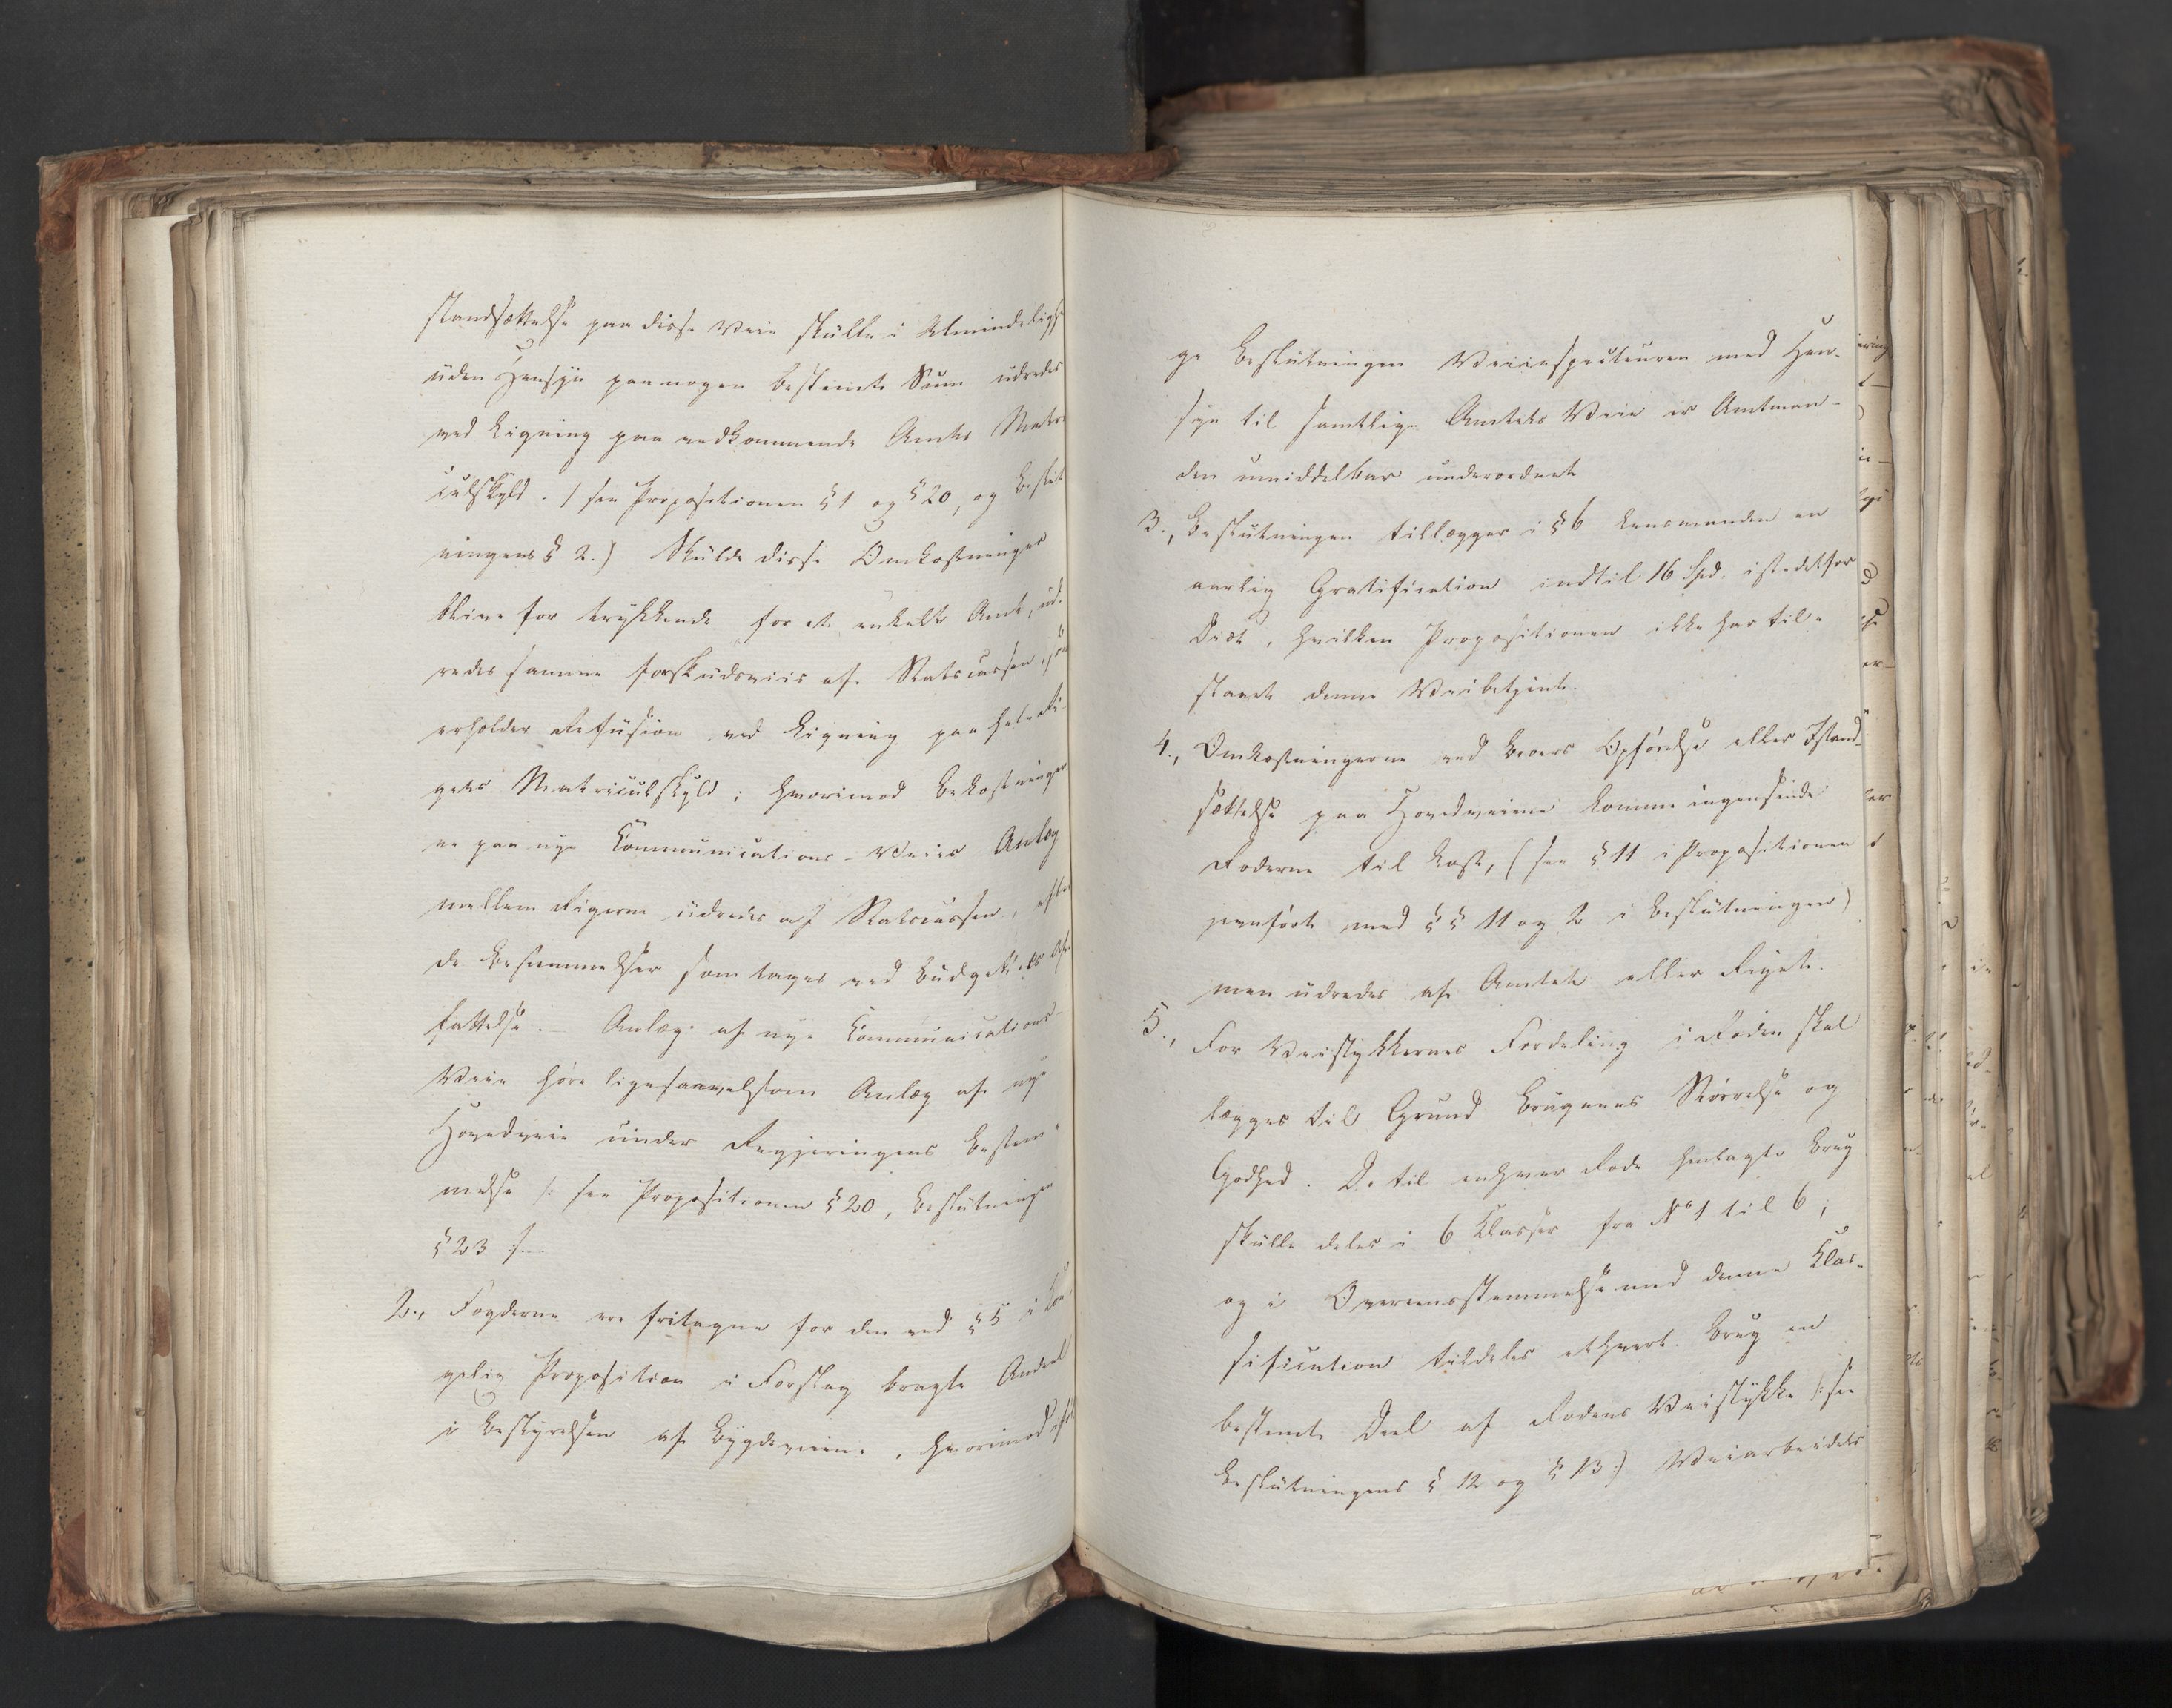 standsættelse paa disse Veie skulle i Almindelighed
uden Hensyn paa nogen bestemt Sum udredes
ved Ligning paa vedkommende Amts Matri-
culskyld. /: see Propositionen § 1 og § 20, og Beslut
ningens § 2.) Skulde disse Omkostninger
blive for trykkende for et enkelt Amt, ud-
redes samme forskudsviis af Statscassen, som
erholder Refusion ved Ligning paa hele Ri-
gets Matriculskyld; hvorimod Bekostninger
ne paa nye Communications-Veies Anlæg
mellem Rigerne udredes af Statscassen, efter
de Bestemmelser som tages ved Budgettets Af-
fattelse. – Anlæg af nye Communications-
Veie høre ligesaavelsom Anlæg af nye
Hovedveie under Regjeringens Bestem-
melse /: see Propositionen § 20, Beslutningen
§ 23 :/
2., Fogderne ere fritagne for den ved § 5 i Kon-
gelig Proposition i Forslag bragte Andeel
i Bestyrelsen af Bygdeveiene, hvorimod ef
ge Beslutningen Veiinspecteuren med Hen-
syn til samtlige Amtets Veie er Amtman-
den umiddelbar underordnet
3., Beslutningen tillægger i § 6 Lensmanden en
aarlig Gratification indtil 16 Spd. istedetfor
Diæt, hvilken Propositionen ikke har til-
staaet denne Veibetjent.
4., Omkostningerne ved Broers Opførelse eller Istand-
sættelse paa Hovedveiene komme ingensinde
Roderne til Last, (see § 11 i Propositionen
jevnført med §§ 11 og 2 i Beslutningen)
men udredes af Amtet eller Riget.
5., For Veistykkernes Fordeling i Roden skal
lægges til Grund Brugenes Størrelse og
Godhed. De til enhver Rode henlagte Brug
skulle deles i 6 Klasser fra No 1 til 6;
og i Overensstemmelse med denne Klas-
sification tildeles ethvert Brug en
bestemt Deel af Rodens Veistykke /: see
Beslutningens § 12 og § 13 :) Veiarbeidets